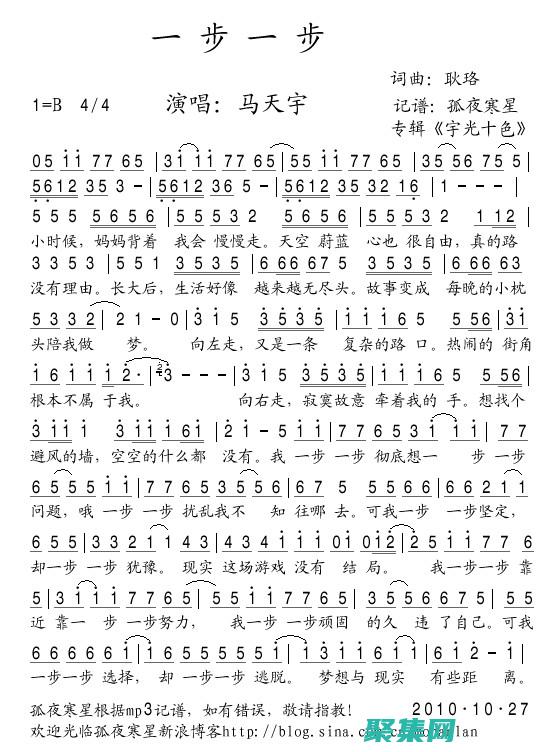 一 步 一 步
词曲：耿珞
1=B 4/4 演唱：马天宇 记谱：孤夜寒星
专辑《宇光十色》
05 11 77 65 | 31 11 77 65 | 55 11 77 65 | 35 56 75 5 |
5612 35 3 - | 5612 35 36 5 - | 5612 35 35 32 16 | 1 - - - |
5 5 5 5 6 5 6 | 5 5 5 3 2 5 5 5 3 5 | 5 5 5 3 2 1 1 12 |
小时候，妈妈背着 我会 慢慢走。天空 蔚蓝 心也 很自由，真的路
3 3 5 3 | 5 5 1 3 5 3 5 | 6 66 67 5 3 5 3 5 | 6 66 63
没有理由。长大后，生活好像 越来越无尽头。故事变成 每晚的小枕
5 3 3 2 | 2 1 - 0 | 3 1 5 3 5 3 5 | 1 1 6 5 5 56 | 31
头陪我做 梦。 向左走，又是一条 复杂的路 口。热闹的 街角
1 6 1 1 | 1 2 · 23 - - | 3 1 5 3 5 3 5 | 1 1 6 5 5 56 |
根本不属 于我。 向右走，寂寞故意 牵着我的 手。想找个
3 11 1 3 11 6 1 | 2 1 - 5 | 1 1 7 7 6 5 3 1 | 1 1 5
避风的墙，空空的什么都 没有。我 一步 一步 彻底想一 步一步
6 5 5 5 1 1 | 7 7 6 5 3 2 3 | 6 7 5 5 5 | 6 6 2 1 1
问题，哦 一步 一步 扰乱我不 知 往哪 去。可我一步 一步坚定，
6 5 5 3 3 2 1 1 | 4 3 4 3 4 1 1 1 | 0 1 0 1 2 | 2 5 1 1 7 7 6
却一步 一步 犹豫。现实 这场游戏 没有 结 局。 我一步一步 靠
5 | 3 1 1 1 7 7 6 5 | 6 5 5 1 1 7 7 6 5 | 3 5 5 6 6 7 5 5 5 |
近 靠一 步一步努力， 我一步 一步顽固 的久 违了自己。可我
6 6 6 6 6 | 6 6 5 5 5 5 5 1 | 1 1 1 1 1 6 5 6 1 | 1 - - - |
一步一步 选择，却 一步一步 逃脱。 梦想与 现实 有些距 离。
孤夜寒星根据mp3记谱，如有错误，敬请指教！ 2010·10·27
欢迎光临孤夜寒星新浪博客http://blog.sina.com.cn
聚集网